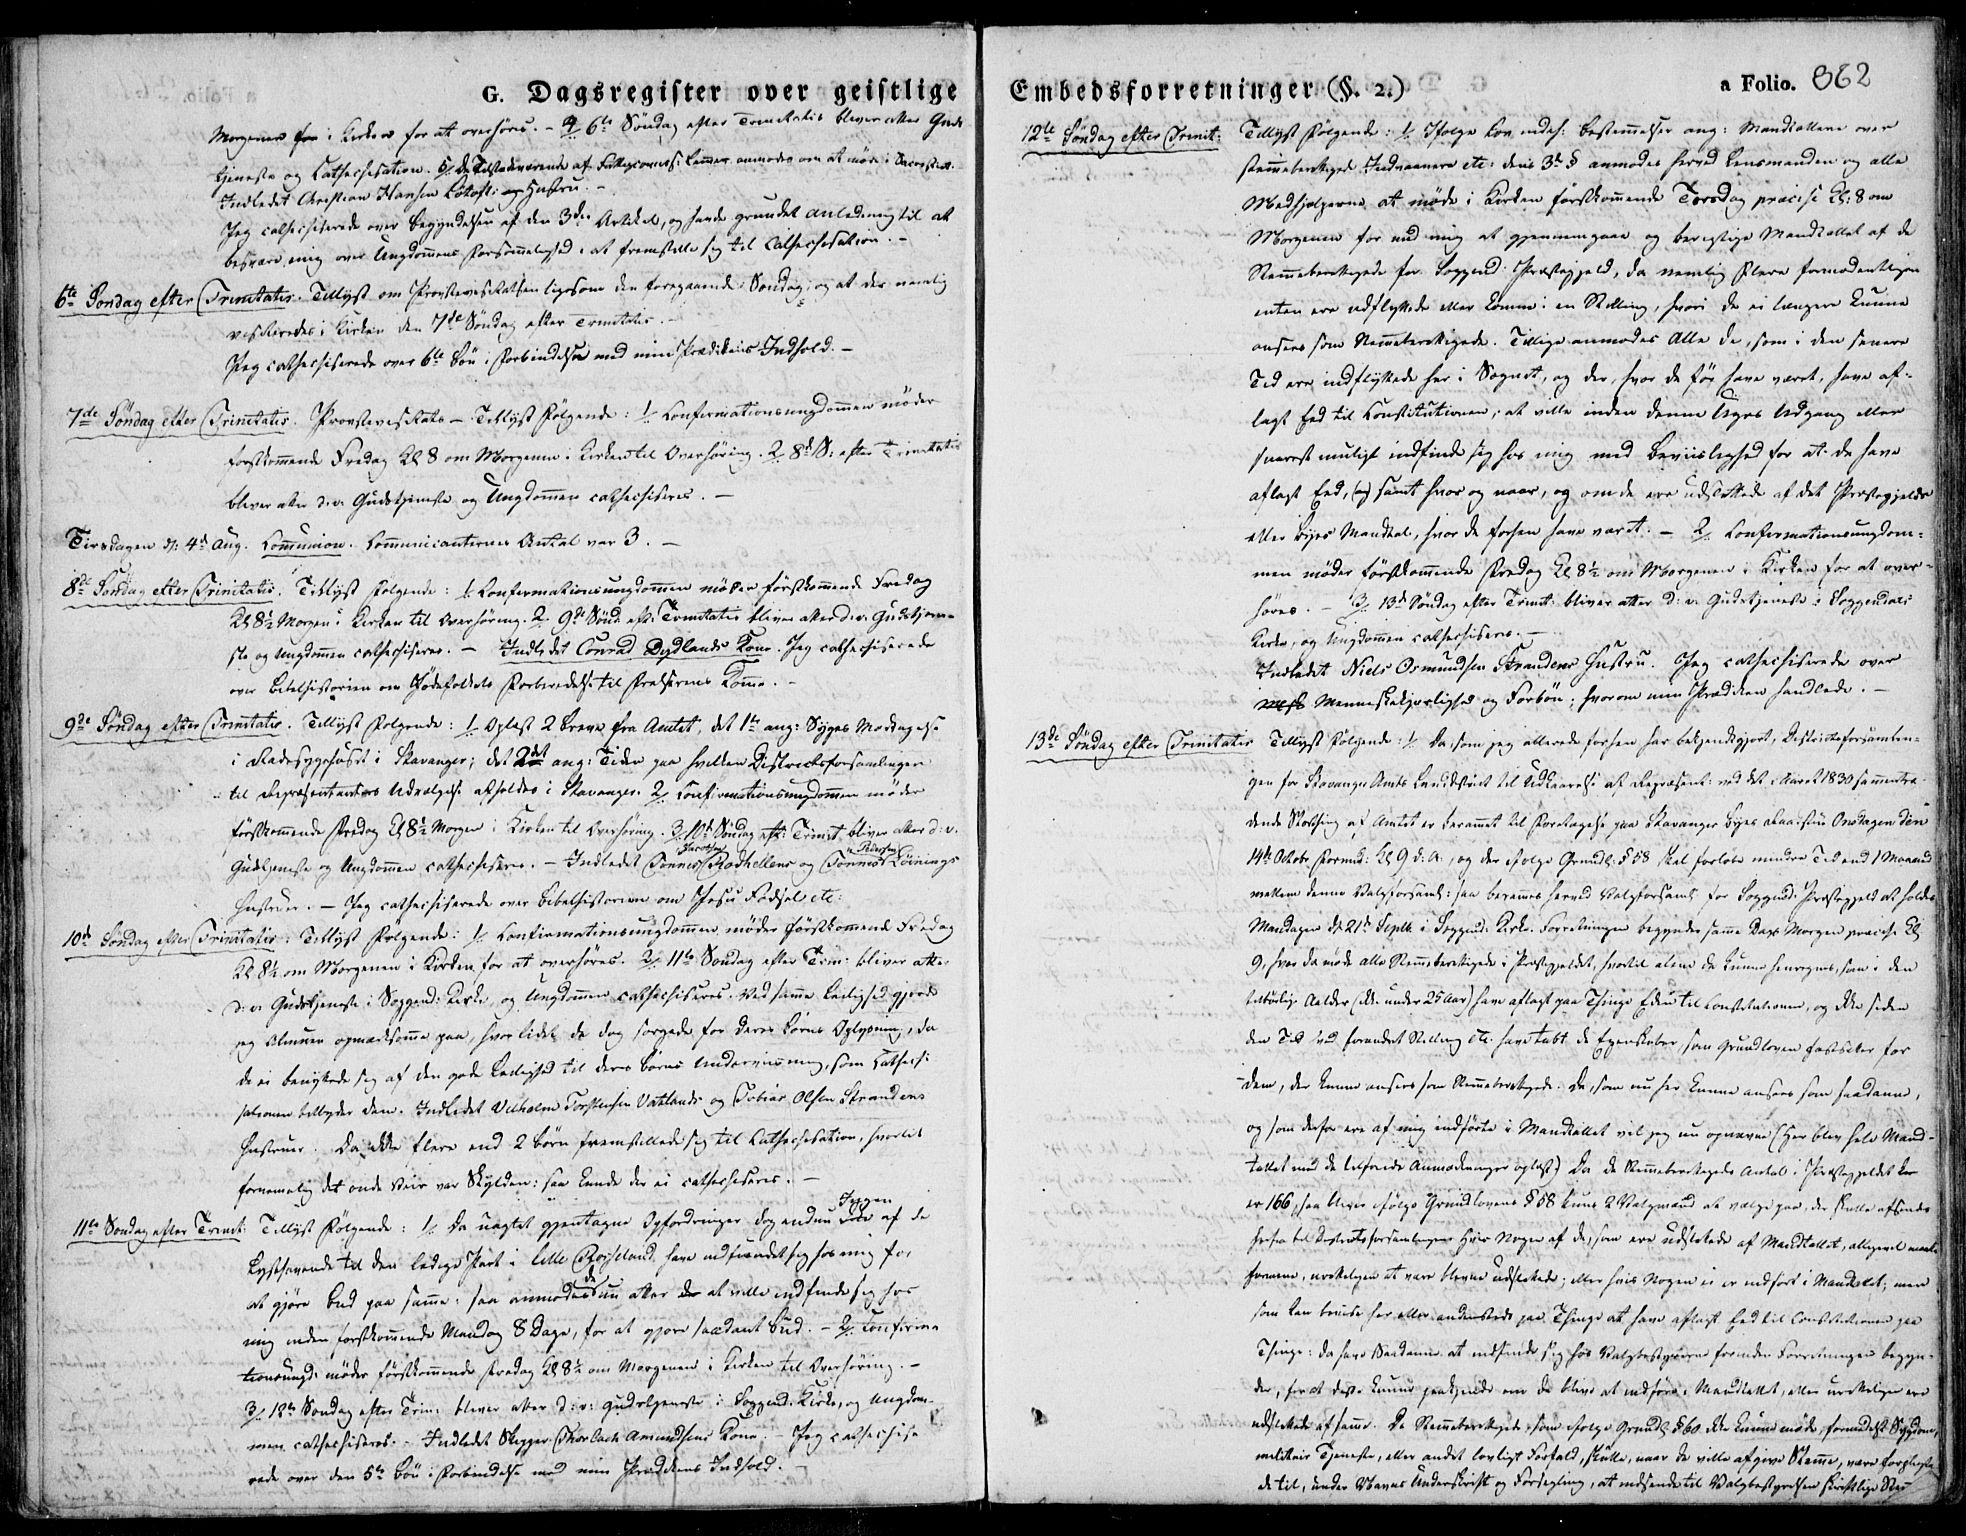 G. Dagsregister over geistlige
Morgenen for i Kirken for at overhøres. - 4/ 6te Søndag efter Trinitatis bliver atter Guds
tjeneste og Cathechisation. 5/ de Tilstedeværende af Fattigcommiss: Lemmer anmodes om at møde i Sacristiet.
Indledet Christian Hansen Hustru. -
Jeg cathechiserede over Begyndelsen af den 3die Artikel, og havde grundet Anledning til at
besvære mig over Ungdommens Forsømmelighed i at fremstille sig til Cathechisation. -
6te Søndag efter Trinitatis. Tillyst om Provstevisitatsen ligesom den foregaaende Søndag, og at der nemlig
visiteredes i Kirken den 7de Søndag efter Trinitatis. -
Jeg cathechiserede over 6te Bøn i Forbindelse med min Prædikens Indhold. -
7de Søndag efter Trinitatis. Provstevisitats - Tillyst Følgende: 1/ Confirmationsungdommen møder
førstkommende Fredag Kl 8 om Morgenen i Kirken til Overhøring. 2/ 8de S: efter Trinitatis
bliver atter d: v. Gudstjeneste og Ungdommen cathechiseres. -
Tirsdagen d: 4de Aug. Communion. Communicanternes Antal var 3. -
8de Søndag efter Trinitatis. Tillyst Følgende: 1/ Confirmationsungdommen møder førstkommende Fredag
Kl 8½ Morgen i Kirken til Overhøring. 2. 9de Sønd. eft: Trinitatis bliver atter d: v. Gudstjene-
ste og Ungdommen cathechiseres. - Indledet Conrad Dydlands Kone. Jeg cathechiserede
over Bibelhistorien om Jødefolkets Forberedelse til Frelserens Komme. -
9de Søndag efter Trinitatis. Tillyst Følgende: 1/ Oplæst 2 Breve fra Amtet, det 1te ang: Syges Modtagelse
i Radesygehuset i Stavanger; det 2det ang: Tiden paa hvilken Districtsforsamlingen
til Repræsentanters Udvælgelse afholdes i Stavanger. 2/ Confirmationsungdommen møder
førstkommende Fredag Kl 8½ Morgen i Kirken til Overhøring. 3/ 10de Søndag eft: Trinit. bliver atter d: v.
Gudstjeneste og Ungdommen cathechiseres. - Indledet Tønnes Rodhellens og Tønnes Pedersen Løinings
Hustruer. - Jeg cathechiserede over Bibelhistorien om Jesu Fødsel etc:
10de Søndag efter Trinitatis: Tillyst Følgende: 1/ Confirmationsungdommen møder førstkommende Fredag
Kl 8½ om Morgenen i Kirken for at overhøres. 2/ 11te Søndag efter Trin: bliver atter
d: v. Gudstjeneste i Soggend: Kirke, og Ungdommen cathechiseres. Ved samme Leilighed gjorde
jeg Almuen opmærksomme paa, hvor lidet de dog sørgede for deres Børns Oplysning, da
de ei benyttede sig af den gode Leilighed til deres Børns Underviisning, som Cathechi
sationen tilbyder dem. Indledet Vilhelm Torstensen Vatlands og Tobias Olsen Strandens
Hustruer. Da ikke flere end 2 Børn fremstillede sig til Cathechisation, hvortil
fornemelig det onde Veir var Skylden: saa kunde der ei cathechiseres. -
11te Søndag efter Trinit: Tillyst Følgende: 1/ Da uagtet gjentagne Opfordringer dog endnu Ingen af de
Lysthavende til den ledige Part i lille Rosseland have indfundet sig hos mig for
at gjøre Bud paa samme: saa anmodes de nu atter at ville indfinde sig hos
mig inden førstkommende Mandag 8 Dage, for at gjøre saadant Bud. - 2/ Confirma
tionsungd: møder førstkommende Fredag Kl 8½ om Morgenen i Kirken til Overhøring. -
3/ 12te Søndag efter Trin: bliver atter d: v: Gudstjeneste i Soggend: Kirke, og Ungdom-
men cathechiseres. - Indledet Skipper Thorlach Amundsens Kone. - Jeg cathechise
rede over den 5te Bøn i Forbindelse med min Prædikens Indhold. -
Embedsforretninger (§. 2.)
a Folio. 862
12te Søndag efter Trinit: Tillyst Følgende: 1/ Ifølge Lov indeh: Bestemmelser ang: Mandtallene over
stemmeberettigede Indvaanere etc: dens 3de § anmodes herved Lensmanden og alle
Medhjelperne at møde i Kirken førstkommende Torsdag præcise Kl: 8 om
Morgenen for med mig at gjennemgaae og berigtige Mandtallet af de
Stemmeberettigede for Soggend: Præstegjeld, da nemlig flere formodentligen
enten ere udflyttede eller komne i en Stilling, hvori de ei længere kunne
ansees som Stemmeberettigede. Tillige anmodes Alle de, som i den senere
Tid ere indflyttede her i Sognet, og der, hvor de før have været, have af-
lagt Eed til Constitutionen; at ville inden denne Uges Udgang eller
snarest muligt indfinde sig hos mig med Beviislighed for at de have
aflagt Eed, (og) samt hvor og naar, og om de ere udslettede af det Præstegjelds
eller Byes Mandtal, hvor de forhen have været. - 2/ Confirmationsungdom-
men møder førstkommende Fredag Kl 8½ om Morgenen i Kirken for at over-
høres. - 3/ 13de Søndag efter Trinit: bliver atter d: v: Gudstjeneste i Soggendals
Kirke, og Ungdommen cathechiseres. -
Indledet Niels Osmundsen Strandens Hustru. Jeg cathechiserede over
Menneskekjærlighed og Forbøn; hvorom min Prædiken handlede. -
13de Søndag efter Trinitatis Tillyst Følgende: 1/ Da, som jeg allerede forhen har bekjendtgjort, Districtsforsamlin-
gen for Stavanger Amts Landdistrict til Udkaarelse af Repræsent: ved det i Aaret 1830 sammentræ-
dende Storthing af Amtet er berammet til Foretagelse paa Stavanger Byes Raadstue Onsdagen den
14de Octobr. Formid: Kl 9 d: A:, og der ifølge Grundl: § 58 skal forløbe mindre Tid end 1 Maaned
mellem denne Valgforsaml: saa berammes herved Valgforsaml: for Soggend: Præstegjeld at holdes
Mandagen d: 21de Septb. i Soggend: Kirke. Forretningen begyndes samme Dags Morgen præcise Kl
9, hvor da møde alle Stemmeberettigede i Præstegjeldet, hvortil alene de kunne henregnes, som i den
tilbørlige Aalder (ikke under 25 Aar) have aflagt paa Thinge Eden til Constitutionen, og ikke siden
den Tid ved forandret Stilling etc. have tabt de Egenskaber, som Grundloven fastsetter for
dem, der kunne ansees som Stemmeberettigede. De, som nu her kunne ansees som saadanne,
og som derfor ere af mig indførte i Mandtallet vil jeg nu opnævne (Her blev hele Mand-
tallet med de tilhørende Anmærkninger oplæst) Da de Stemmeberettigedes Antal i Præstegjeldet her
er 166, saa bliver ifølge Grundlovens § 58 kuns 2 Valgmænd at vælge paa, der skulle afsendes
herfra til Districtsforsamlingen. Hvis Nogen af de, som ere udslettede af Mandtallet, alligevel maatte
formene, urettelige at være blevne udslettede; eller hvis Nogen ei er indført i Mandtallet, men
som kan bevise her eller andensteds paa Thinge at have aflagt Eed til Constitutionen paa
Thinge: da have Saadanne at indfinde sig hos Valgbestyreren førend Forretningen begyn-
der, for at deres Lemme paakjende om de blive at indføre i Mandtallet, eller urettelige ere
udslettede af samme. De Stemmeberettigede, som ifølge Grundl: § 60 ikke kunne møde, formedelst Sygdom,
militair Tjeneste, eller andet lovligt Forfald, skulle, naar de ville afgive Stemme, være forpligte
de til, under Navns Underskrift og Forsegling, at indsende til Valgbestyrelsen skriftlige Stem